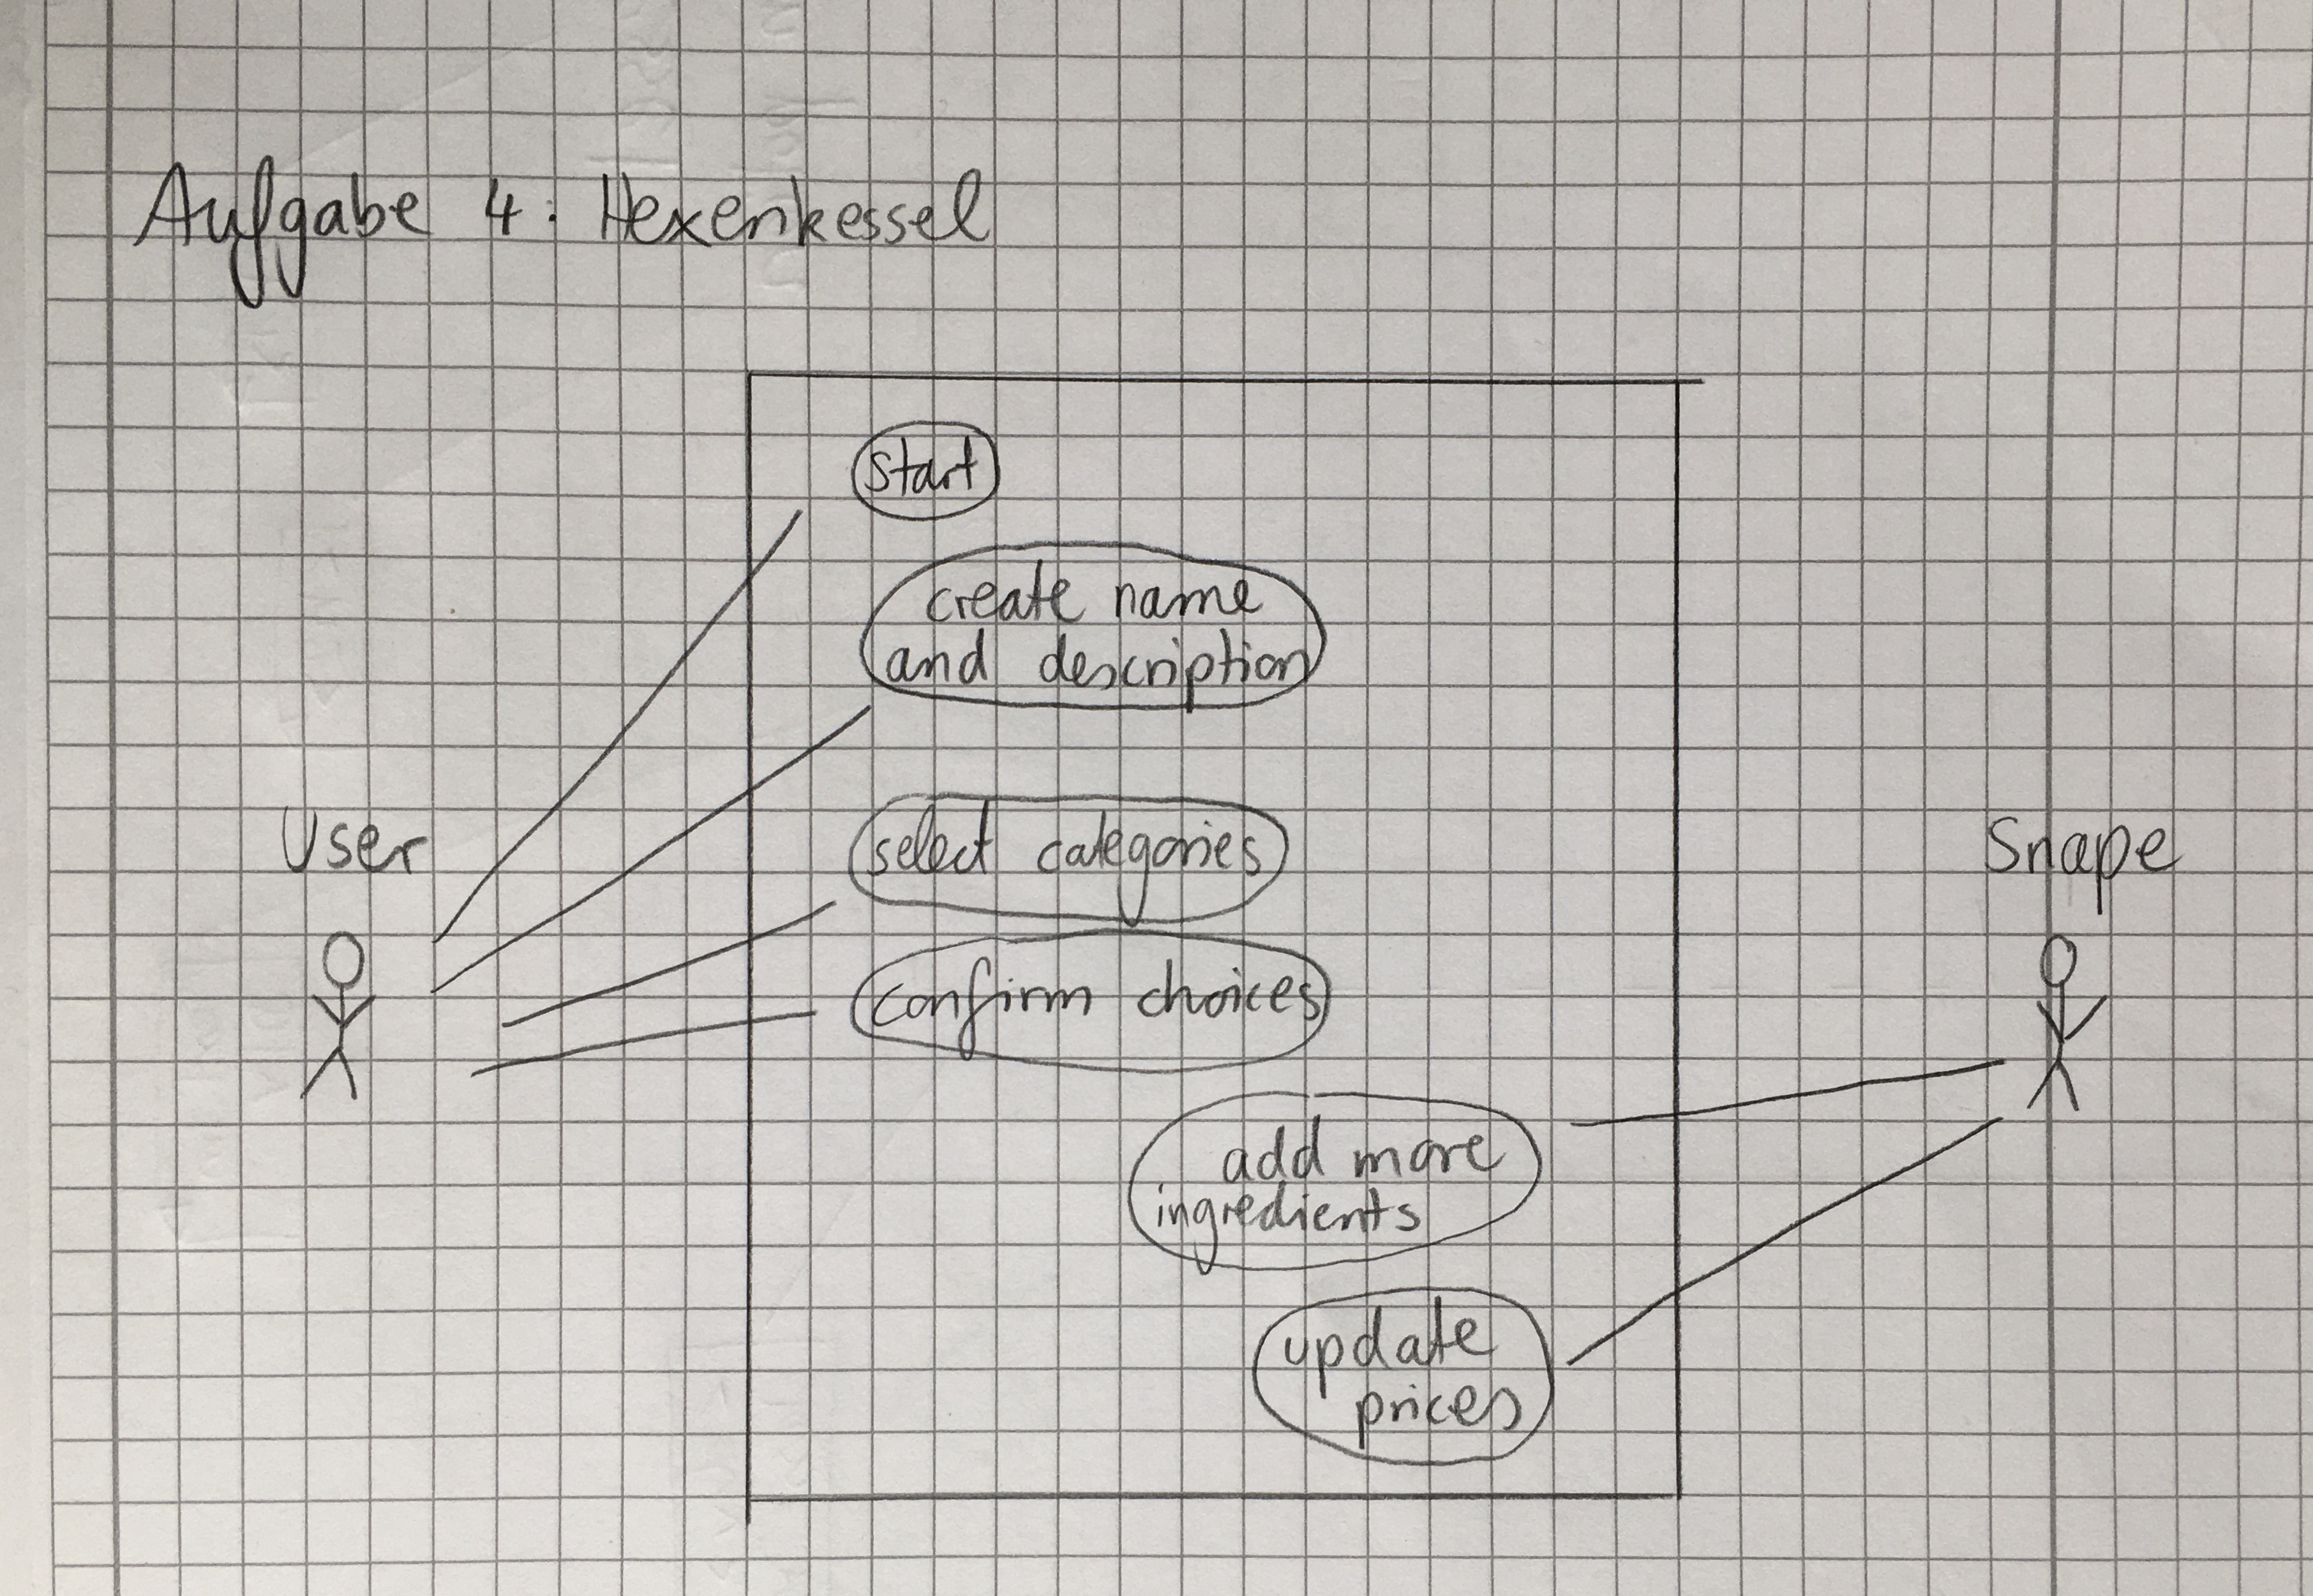 Aufgabe 4: Hexenkessel
start
create name
and description
User
select categories
Snape
confirm choices
add more
ingredients
update
prices